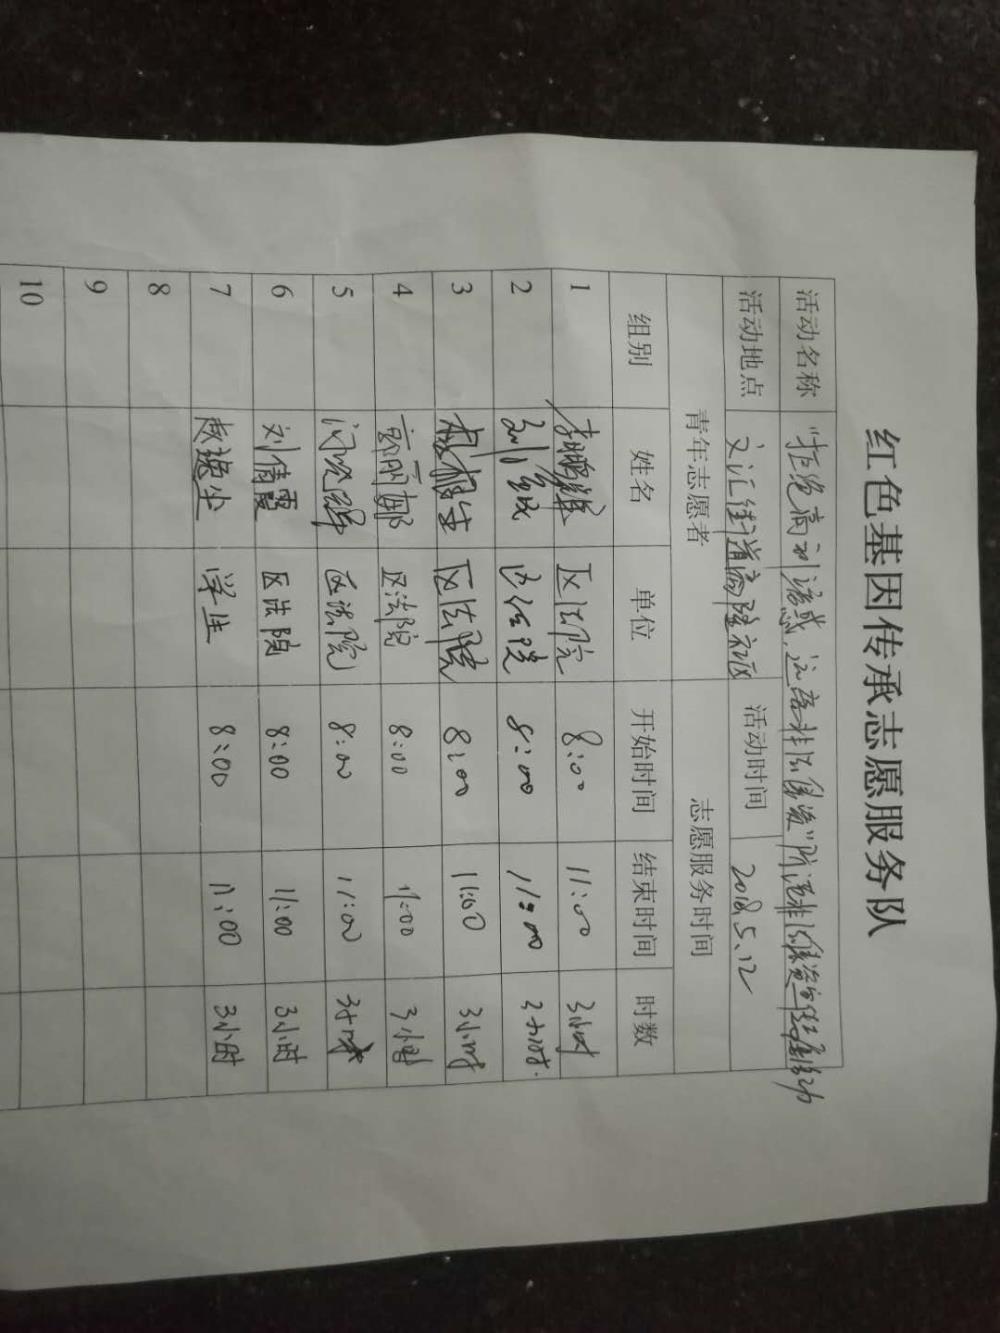 红色基因传承志愿服务队
活动名称 "拒绝高利诱惑,远离非法集资"防范非法集资宣传活动
活动地点 文汇街道高隆社区 活动时间 2018.5.12
青年志愿者 志愿服务时间
组别 姓名 单位 开始时间 结束时间 时数
1 区法院 8:00 11:00 3小时
2 刘 区法院 8:00 11:00 3小时
3 区法院 8:00 11:00 3小时
4 区法院 8:00 11:00 3小时
5 区法院 8:00 11:00 3小时
6 刘倩霞 区法院 8:00 11:00 3小时
7 学生 8:00 11:00 3小时
8
9
10